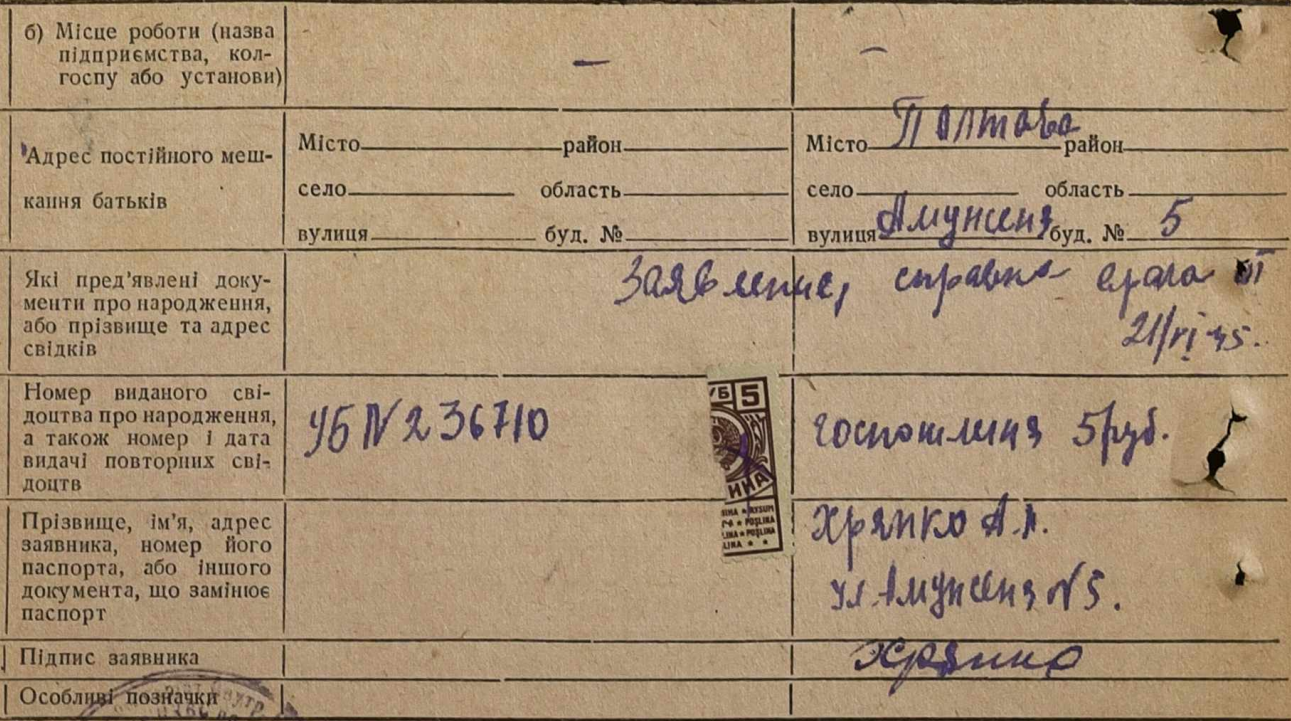 б) Місце роботи (назва
підприємства, кол-
госпу або установи)
—
—
Адрес постійного меш-
кання батьків
Місто район
село область
вулиця буд. №
Місто Полтава район
село область
вулиця Амунсена буд. № 5
Які пред'явлені доку-
менти про народження,
або прізвище та адрес
свідків
Заявление, справка врага
21/VI 45.
Номер виданого сві-
доцтва про народження,
а також номер і дата
видачі повторних сві-
доцтв
УБ N 236710
УБ 5
ИНА
POŞLINA
POŞLINA
госпошлина 5 руб.
Прізвище, ім'я, адрес
заявника, номер його
паспорта, або іншого
документа, що замінює
паспорт
Хряпко А.
ул. Амунсена N 5.
Підпис заявника
Хряпко
Особливі позначки